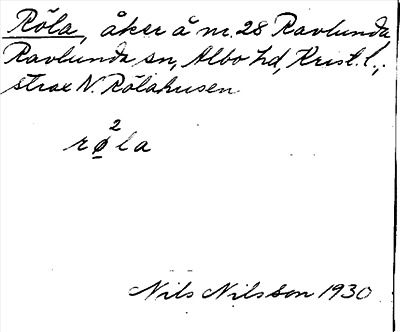 Röla, åker å nr. 28 Ravlunda
Ravlunda sn, Albo hd, Krist. l.,
strax N. Rölahusen
rø²la
Nils Nilsson 1930